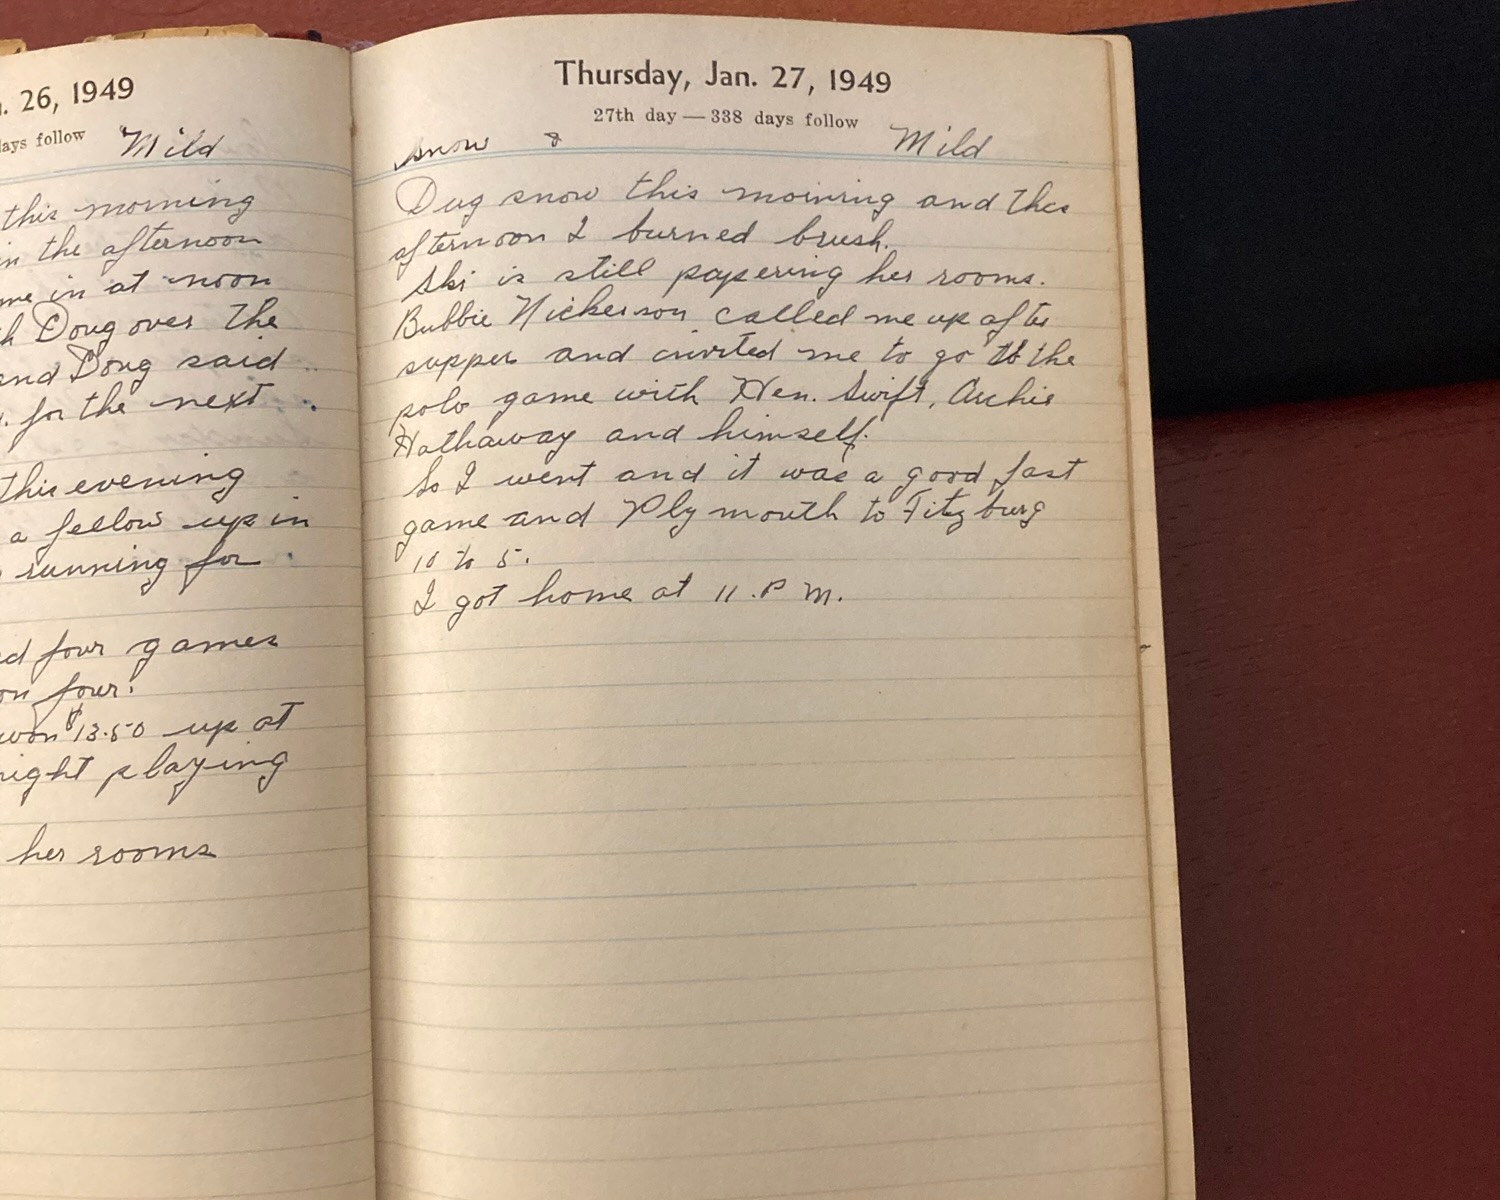 . 26, 1949
days follow
Mild
this morning
in the afternoon
me in at noon
h Doug over the
and Doug said
. for the next
this evening
a fellow up in
running for
ed four games
on four.
won $13.50 up at
night playing
her rooms
Thursday, Jan. 27, 1949
27th day — 338 days follow
snow & Mild
Dug snow this moining and this
afternoon I burned brush.
Ski is still papering her rooms.
Bubbie Nickerson called me up after
supper and invited me to go to the
polo game with Hen. Swift, Archie
Hathaway and himself.
So I went and it was a good fast
game and Plymouth to Fitzburg
10 to 5.
I got home at 11 . P M.